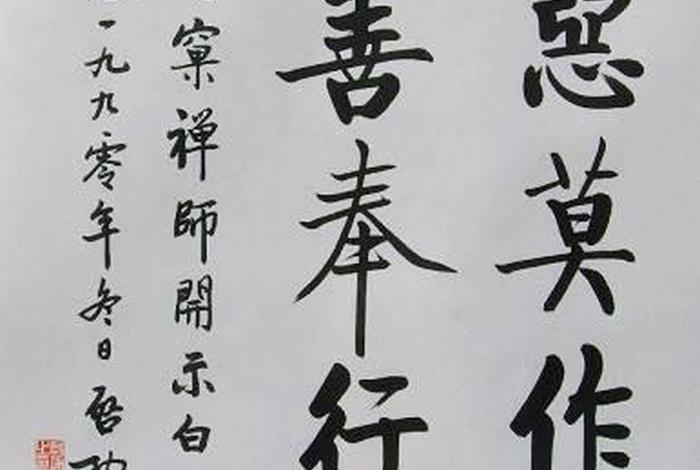 惡莫作
善奉行
窠禅師開示白
一九九零年冬日启功